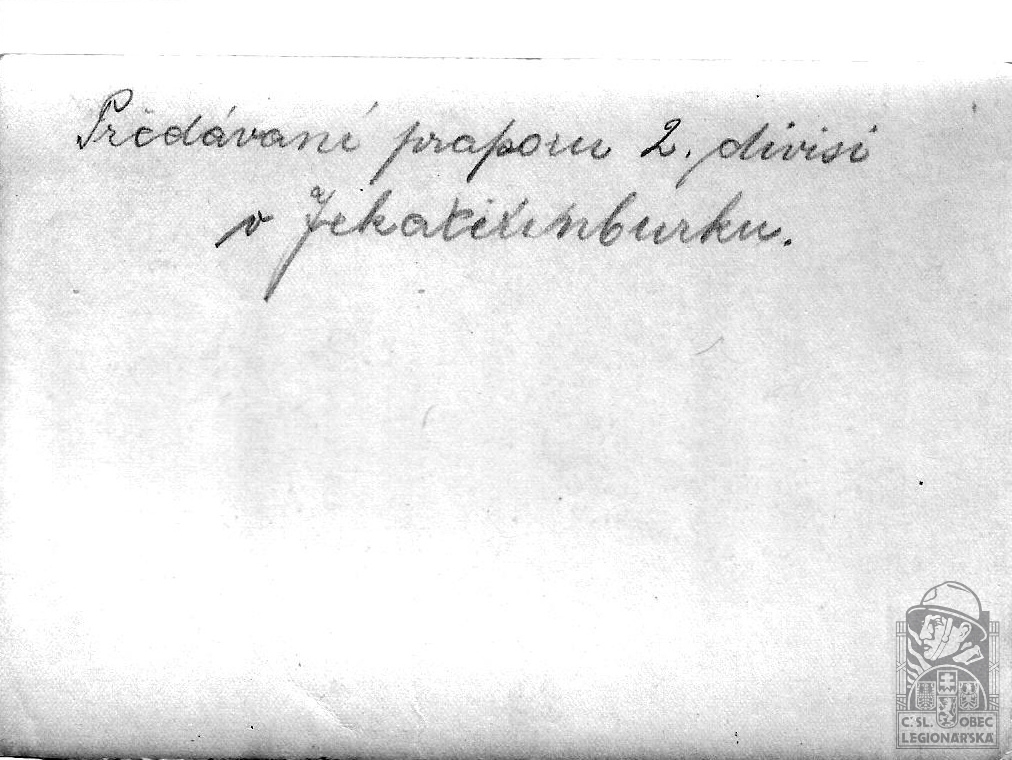 Předávaní praporu 2. divisi
v Jekatěrinburku.
Č. SL. OBEC
LEGIONÁŘSKÁ